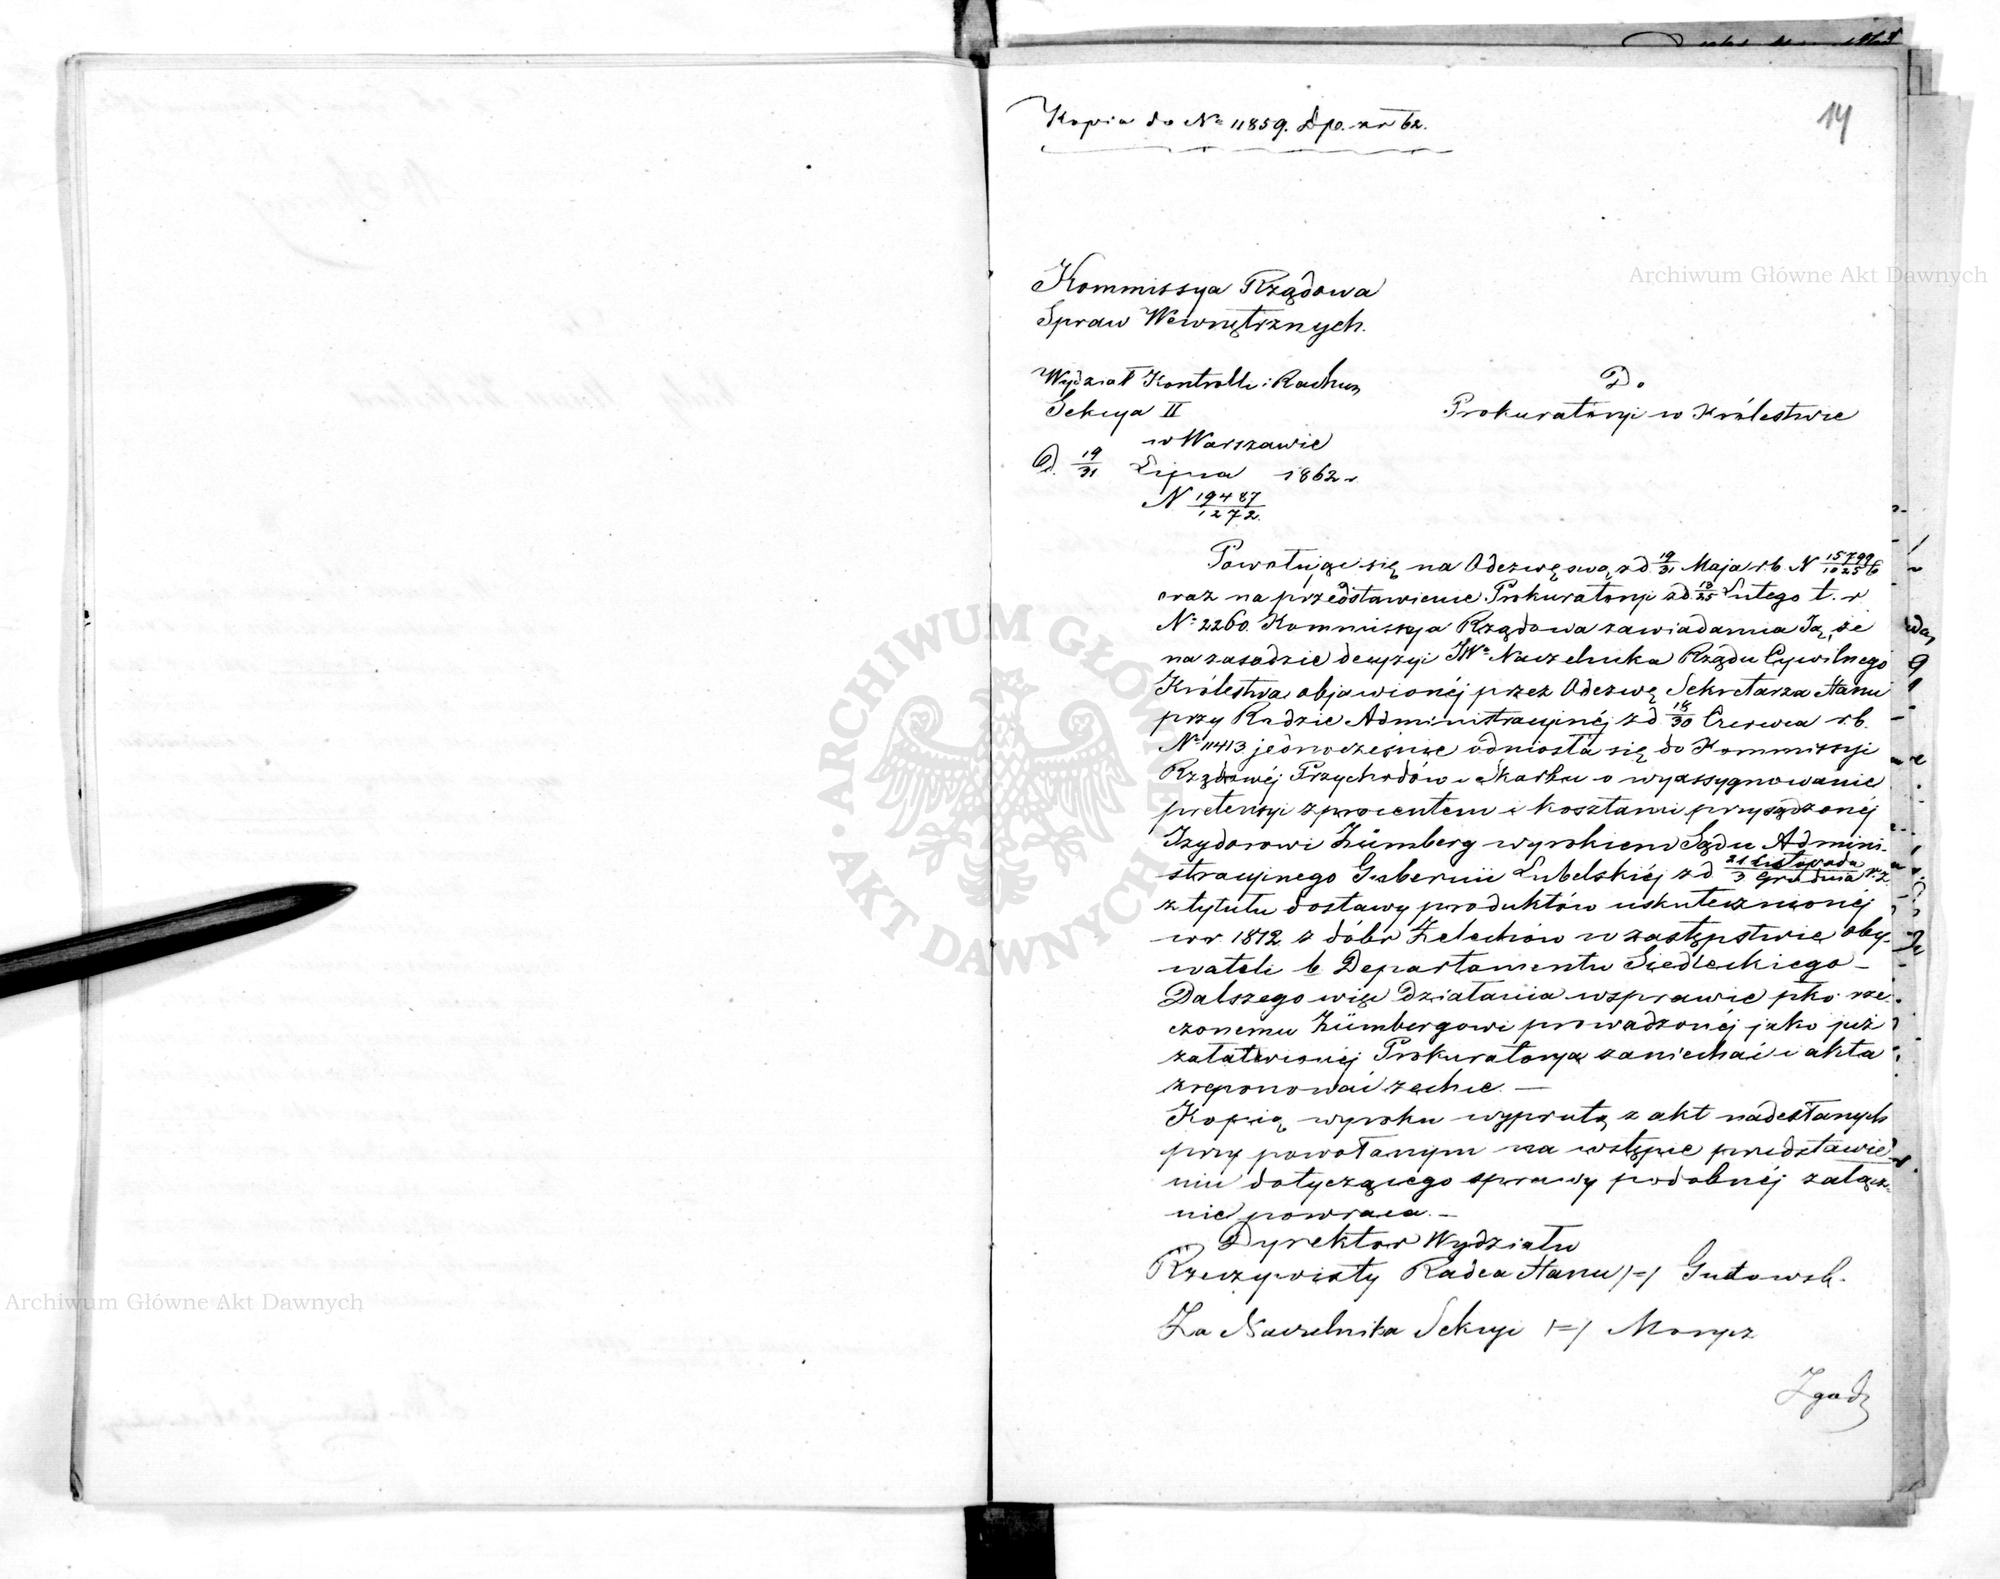 14
Kopia do No 11859. Dpo. zr 62.
Kommissya Rządowa
Spraw Wewnętrznych.
Wydział Kontrolli i Rachun
Sekcya II
w Warszawie
d. 19/31 Lipca 1862 r
N 19487/1272.
Do
Prokuratoryi w Królestwie
Powołując się na Odezwę swą z d. 19/31 Maja r.b. N 15799/10256
oraz na przedstawienie Prokuratoryi z d. 13/25 Lutego t. r
No 2260. Kommissya Rządowa zawiadamia Ją, że
na zasadzie decyzyi JWo Naczelnika Rządu Cywilnego
Królestwa objawionéj przez Odezwę Sekretarza Stanu
przy Radzie Administracyjnéj z d 18/30 Czerwca r.b.
No 11413 jednocześnie odniosła się do Kommissyi
Rządowéj Przychodów i Skarbu o wyassygnowanie
pretensyi z procentem i kosztami przysądzonéj
Izydorowi Zümberg wyrokiem Sądu Admini-
stracyjnego Gubernii Lubelskiéj z d 21 Listopada/3 Grudnia r.z.
z tytułu dostawy produktów uskutecznionéj
w r. 1812 z dóbr Żelechów w zastępstwie oby-
wateli b Departamentu Siedleckiego –
Dalszego więc działania w sprawie pko rze-
czonemu Zümbergowi prowadzonéj jako już
załatwionéj Prokuratorya zaniechać i akta
zreponować zechce. —
Kopią wyroku wyprutą z akt nadesłanych
przy powołanym na wstępie przedstawie-
niu dotyczącego sprawy podobnéj załącz-
nie powraca. –
Dyrektor Wydziału
Rzeczywisty Radca Stanu /–/ Gutowsk.
Za Naczelnika Sekcyi /–/ Morycz
Zgadz
Archiwum Główne Akt Dawnych
ARCHIWUM GŁÓWNE AKT DAWNYCH
Archiwum Główne Akt Dawnych